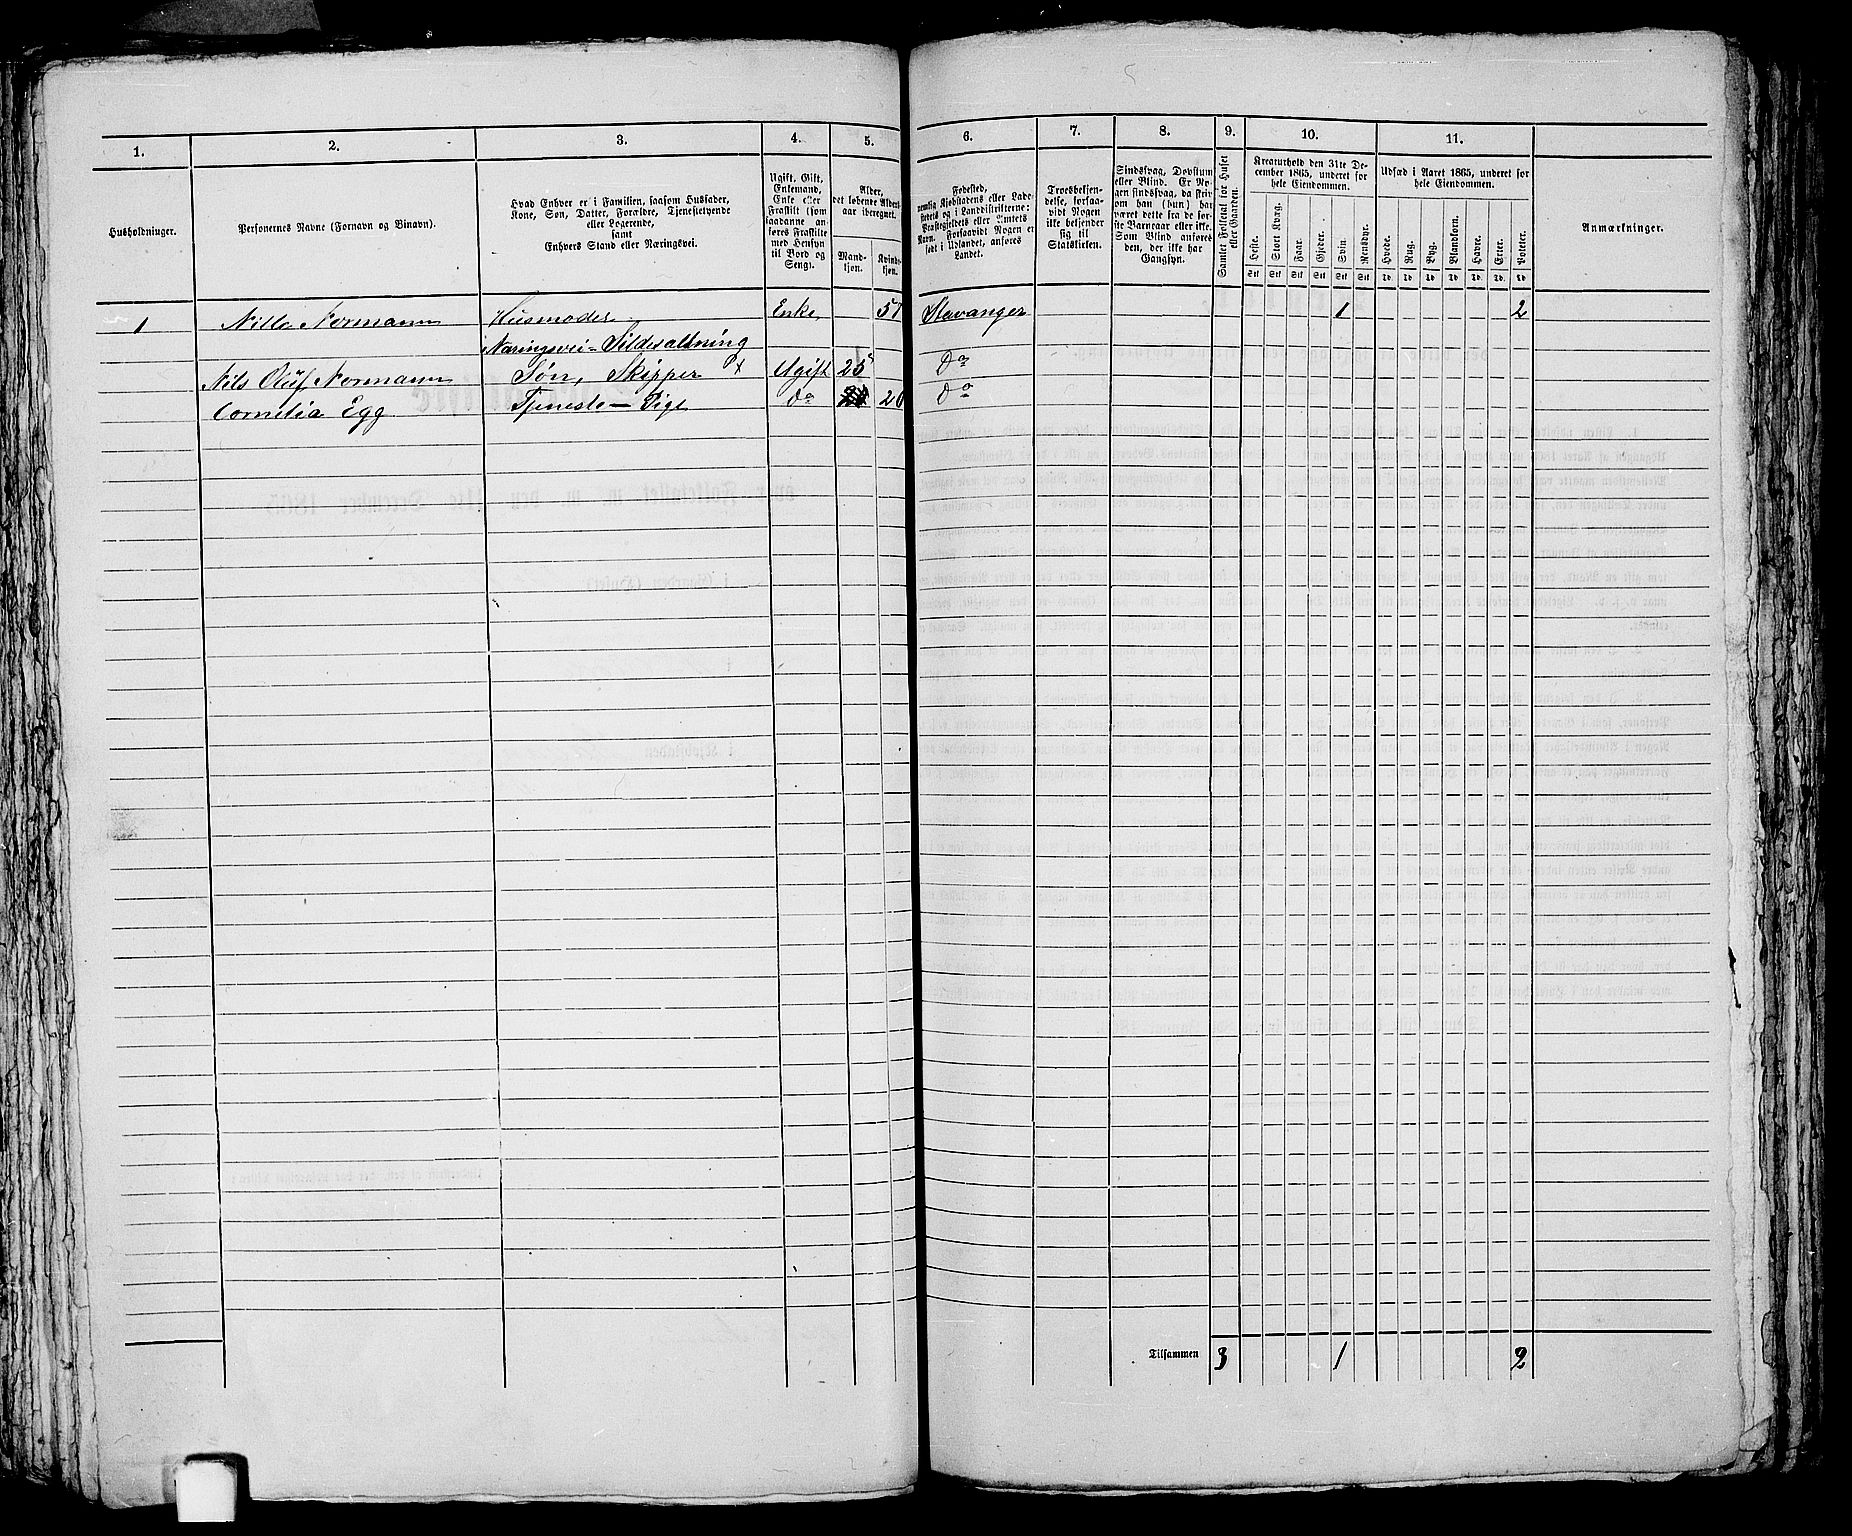 1. 2. 3. 4. 5. 6. 7. 8. 9. 10. 11.
Husholdninger.
Personernes Navne (Fornavn og Binavn).
Hvad Enhver er i Familien, saasom Husfader,
Kone, Søn, Datter, Forældre, Tjenestetyende
eller Logerende,
samt
Enhvers Stand eller Næringsvei.
Ugift, Gift,
Enkemand,
Enke eller
Fraskilt (som
saadanne an-
føres Fraskilte
med Hensyn
til Bord og
Seng).
Alder,
det løbende Alders-
aar iberegnet.
Mand-
kjøn.
Kvinde-
kjøn.
Fødested,
nemlig Kjøbstadens eller Lade-
stedets og i Landdistrikterne:
Præstegjeldets eller Amtets
Navn. Forsaavidt Nogen er
født i Udlandet, anføres
Landet.
Troesbekjen-
delse, forsaa-
vidt Nogen
ikke bekjender
sig til
Statskirken.
Sindssvag, Døvstum
eller Blind. Er No-
gen sindssvag, da hvis
om han (hun) har
været dette fra de før-
ste Barneaar eller ikke.
Som Blind anføres
den, der ikke har
Gangsyn.
Samlet Folketal for Huset
eller Gaarden.
Kreaturhold den 31te De-
cember 1865, underet for
hele Eiendommen.
Heste. Stort Kvæg. Faar. Gjeder. Svin. Rensdyr.
Stk Stk Stk Stk Stk Stk
Udsæd i Aaret 1865, underet for
hele Eiendommen.
Hvede. Rug. Byg. Blandkorn. Havre. Erter. Poteter.
Td. Td. Td. Td. Td. Td. Td.
Anmærkninger.
1 Nilla Normann Husmoder Enke 57 Stavanger 1 2
Næringsvei - Sildesaltning
Nils Oluf Normann Søn, Skipper Ugift 25 Do
Cornelia Egg Tjeneste - Pige do 20 do
Tilsammen 3 1 2